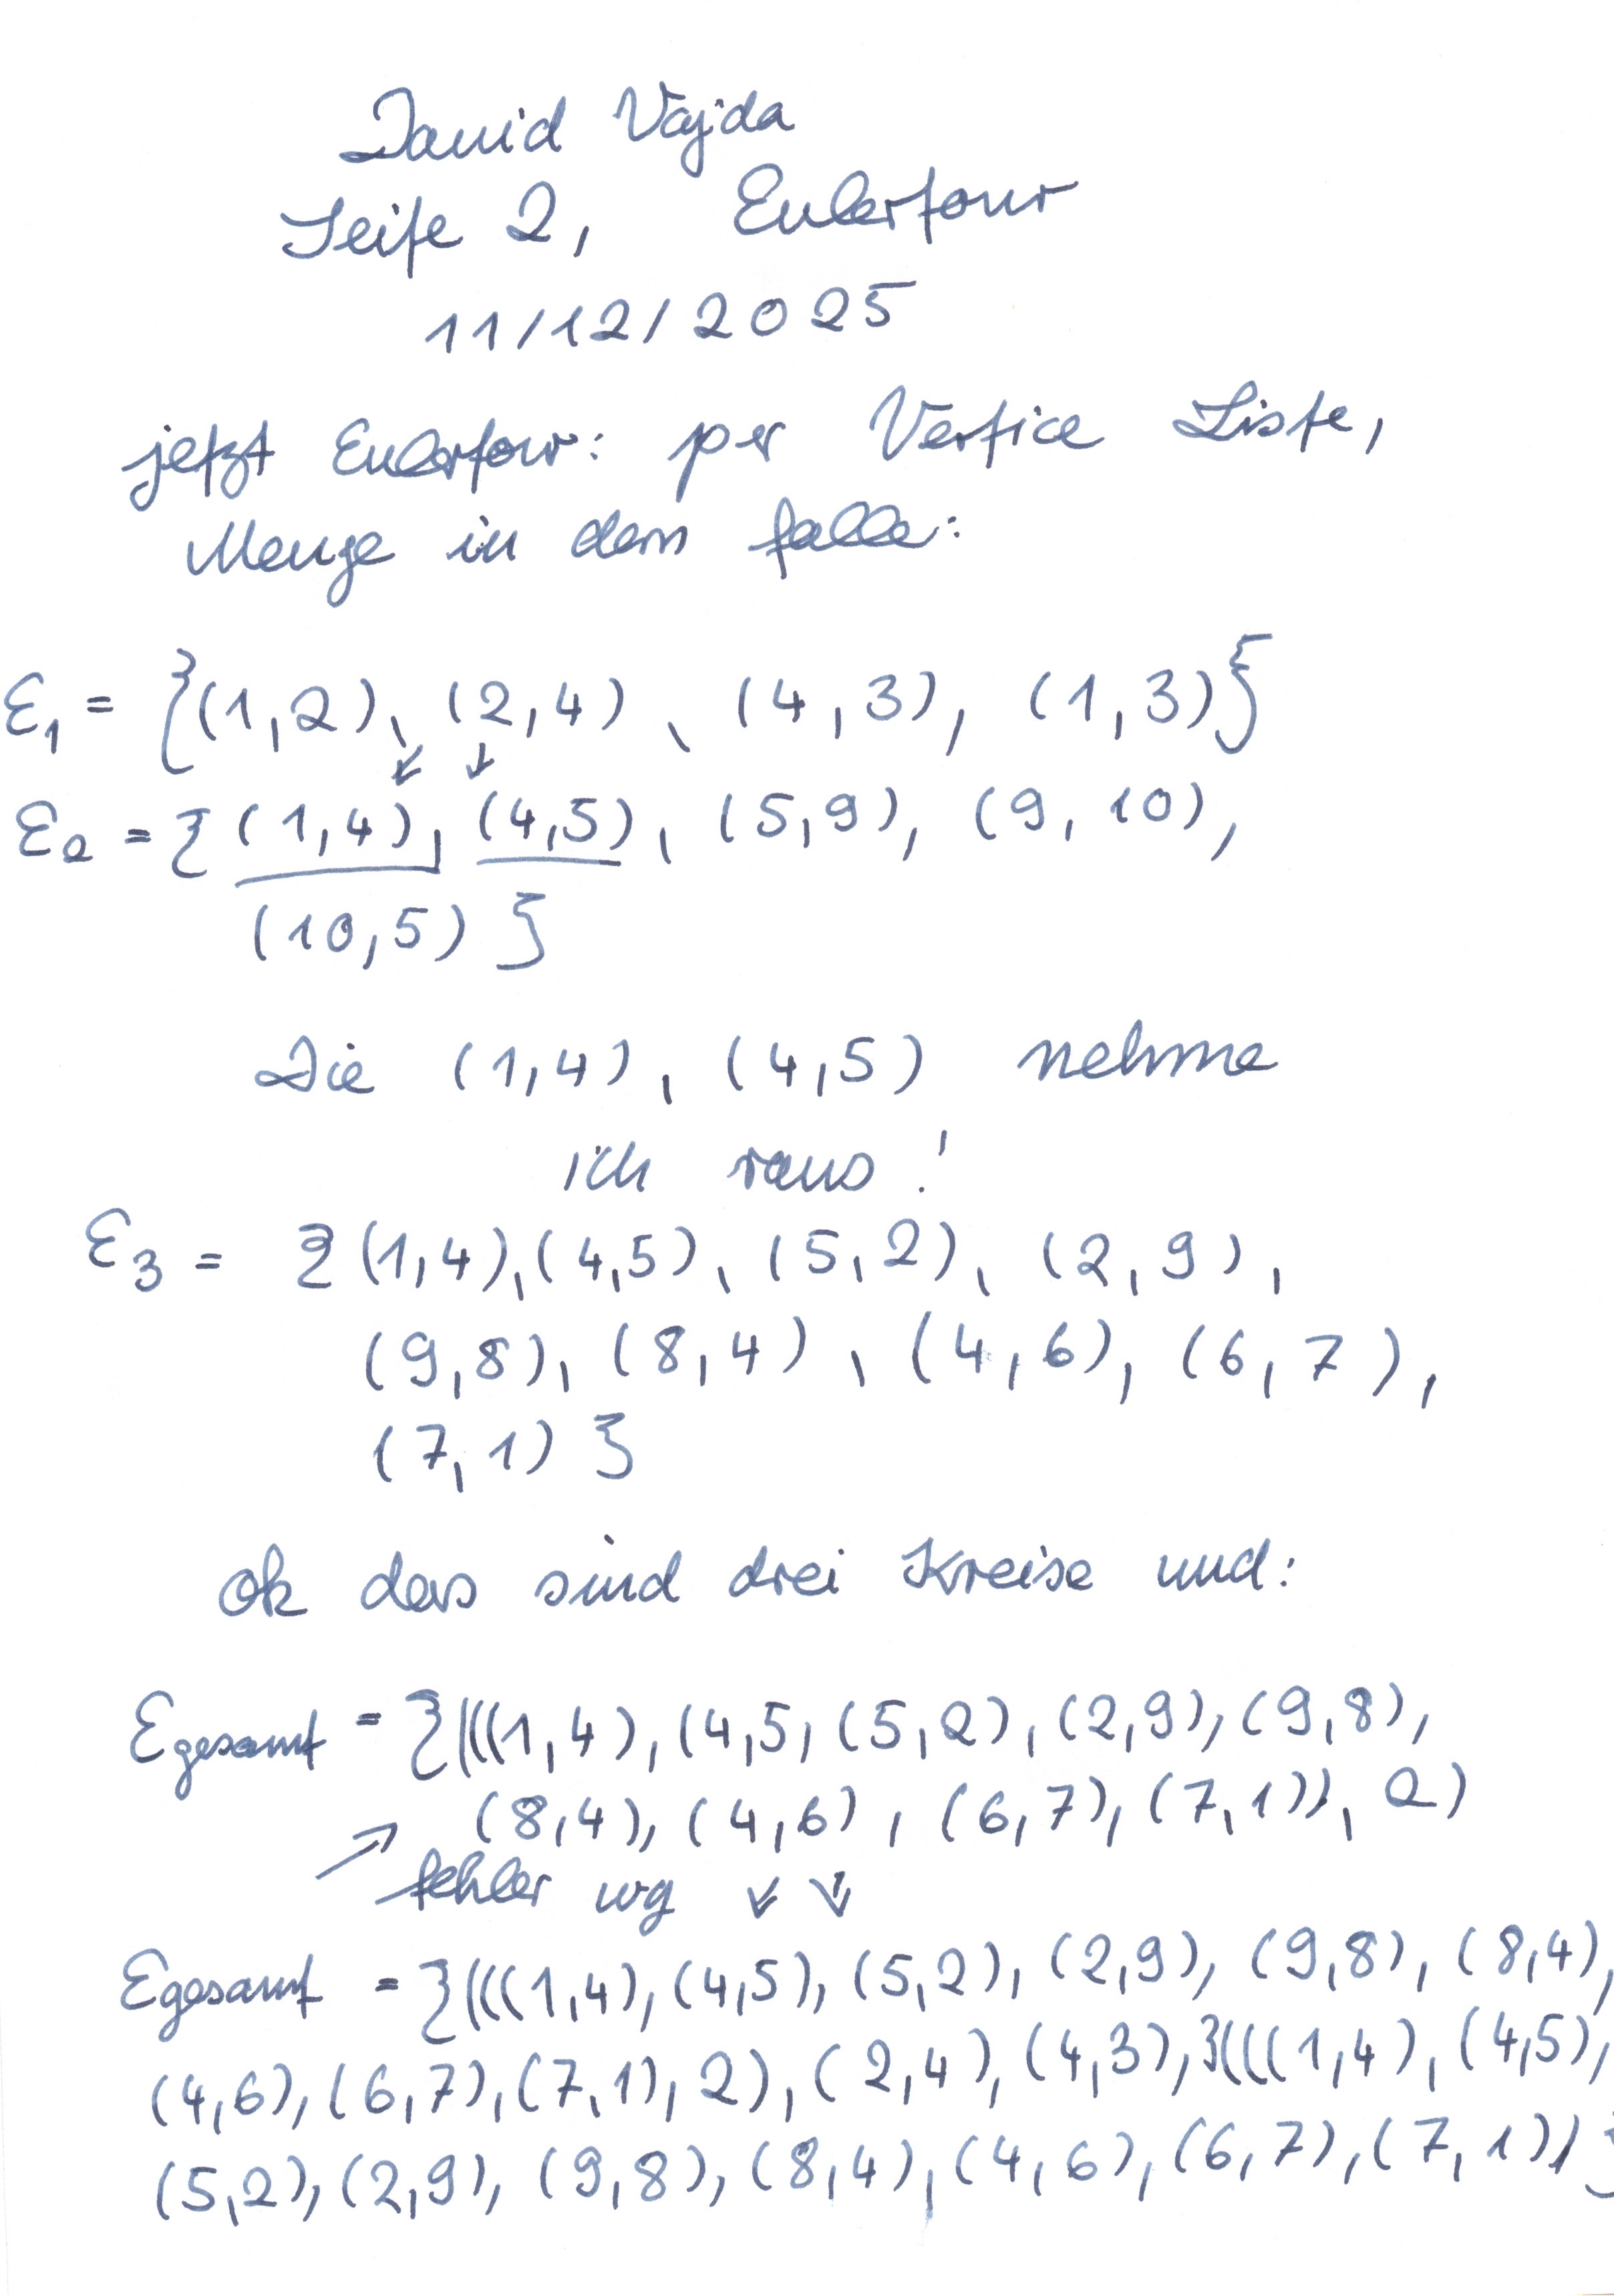 David Vajda
Seite 2, Eulertour
11/12/2025
jetzt Eulertour: per Vertice Liste,
Menge in dem falle:
E1 = {(1,2), (2,4), (4,3), (1,3)}
↙ ↓
E2 = {(1,4), (4,5), (5,9), (9,10),
(10,5)}
Die (1,4), (4,5) nehme
ich raus!
E3 = {(1,4),(4,5), (5,2), (2,9),
(9,8), (8,4), (4,6), (6,7),
(7,1)}
ok das sind drei Kreise und:
Egesamt = {(((1,4), (4,5, (5,2), (2,9), (9,8),
(8,4), (4,6), (6,7), (7,1)), 2)
↗ fehler wg ↓ ↓
Egesamt = {(((1,4), (4,5), (5,2), (2,9), (9,8), (8,4),
(4,6), (6,7), (7,1), 2), (2,4), (4,3), 3(((1,4), (4,5),
(5,2), (2,9), (9,8), (8,4), (4,6), (6,7), (7,1))}